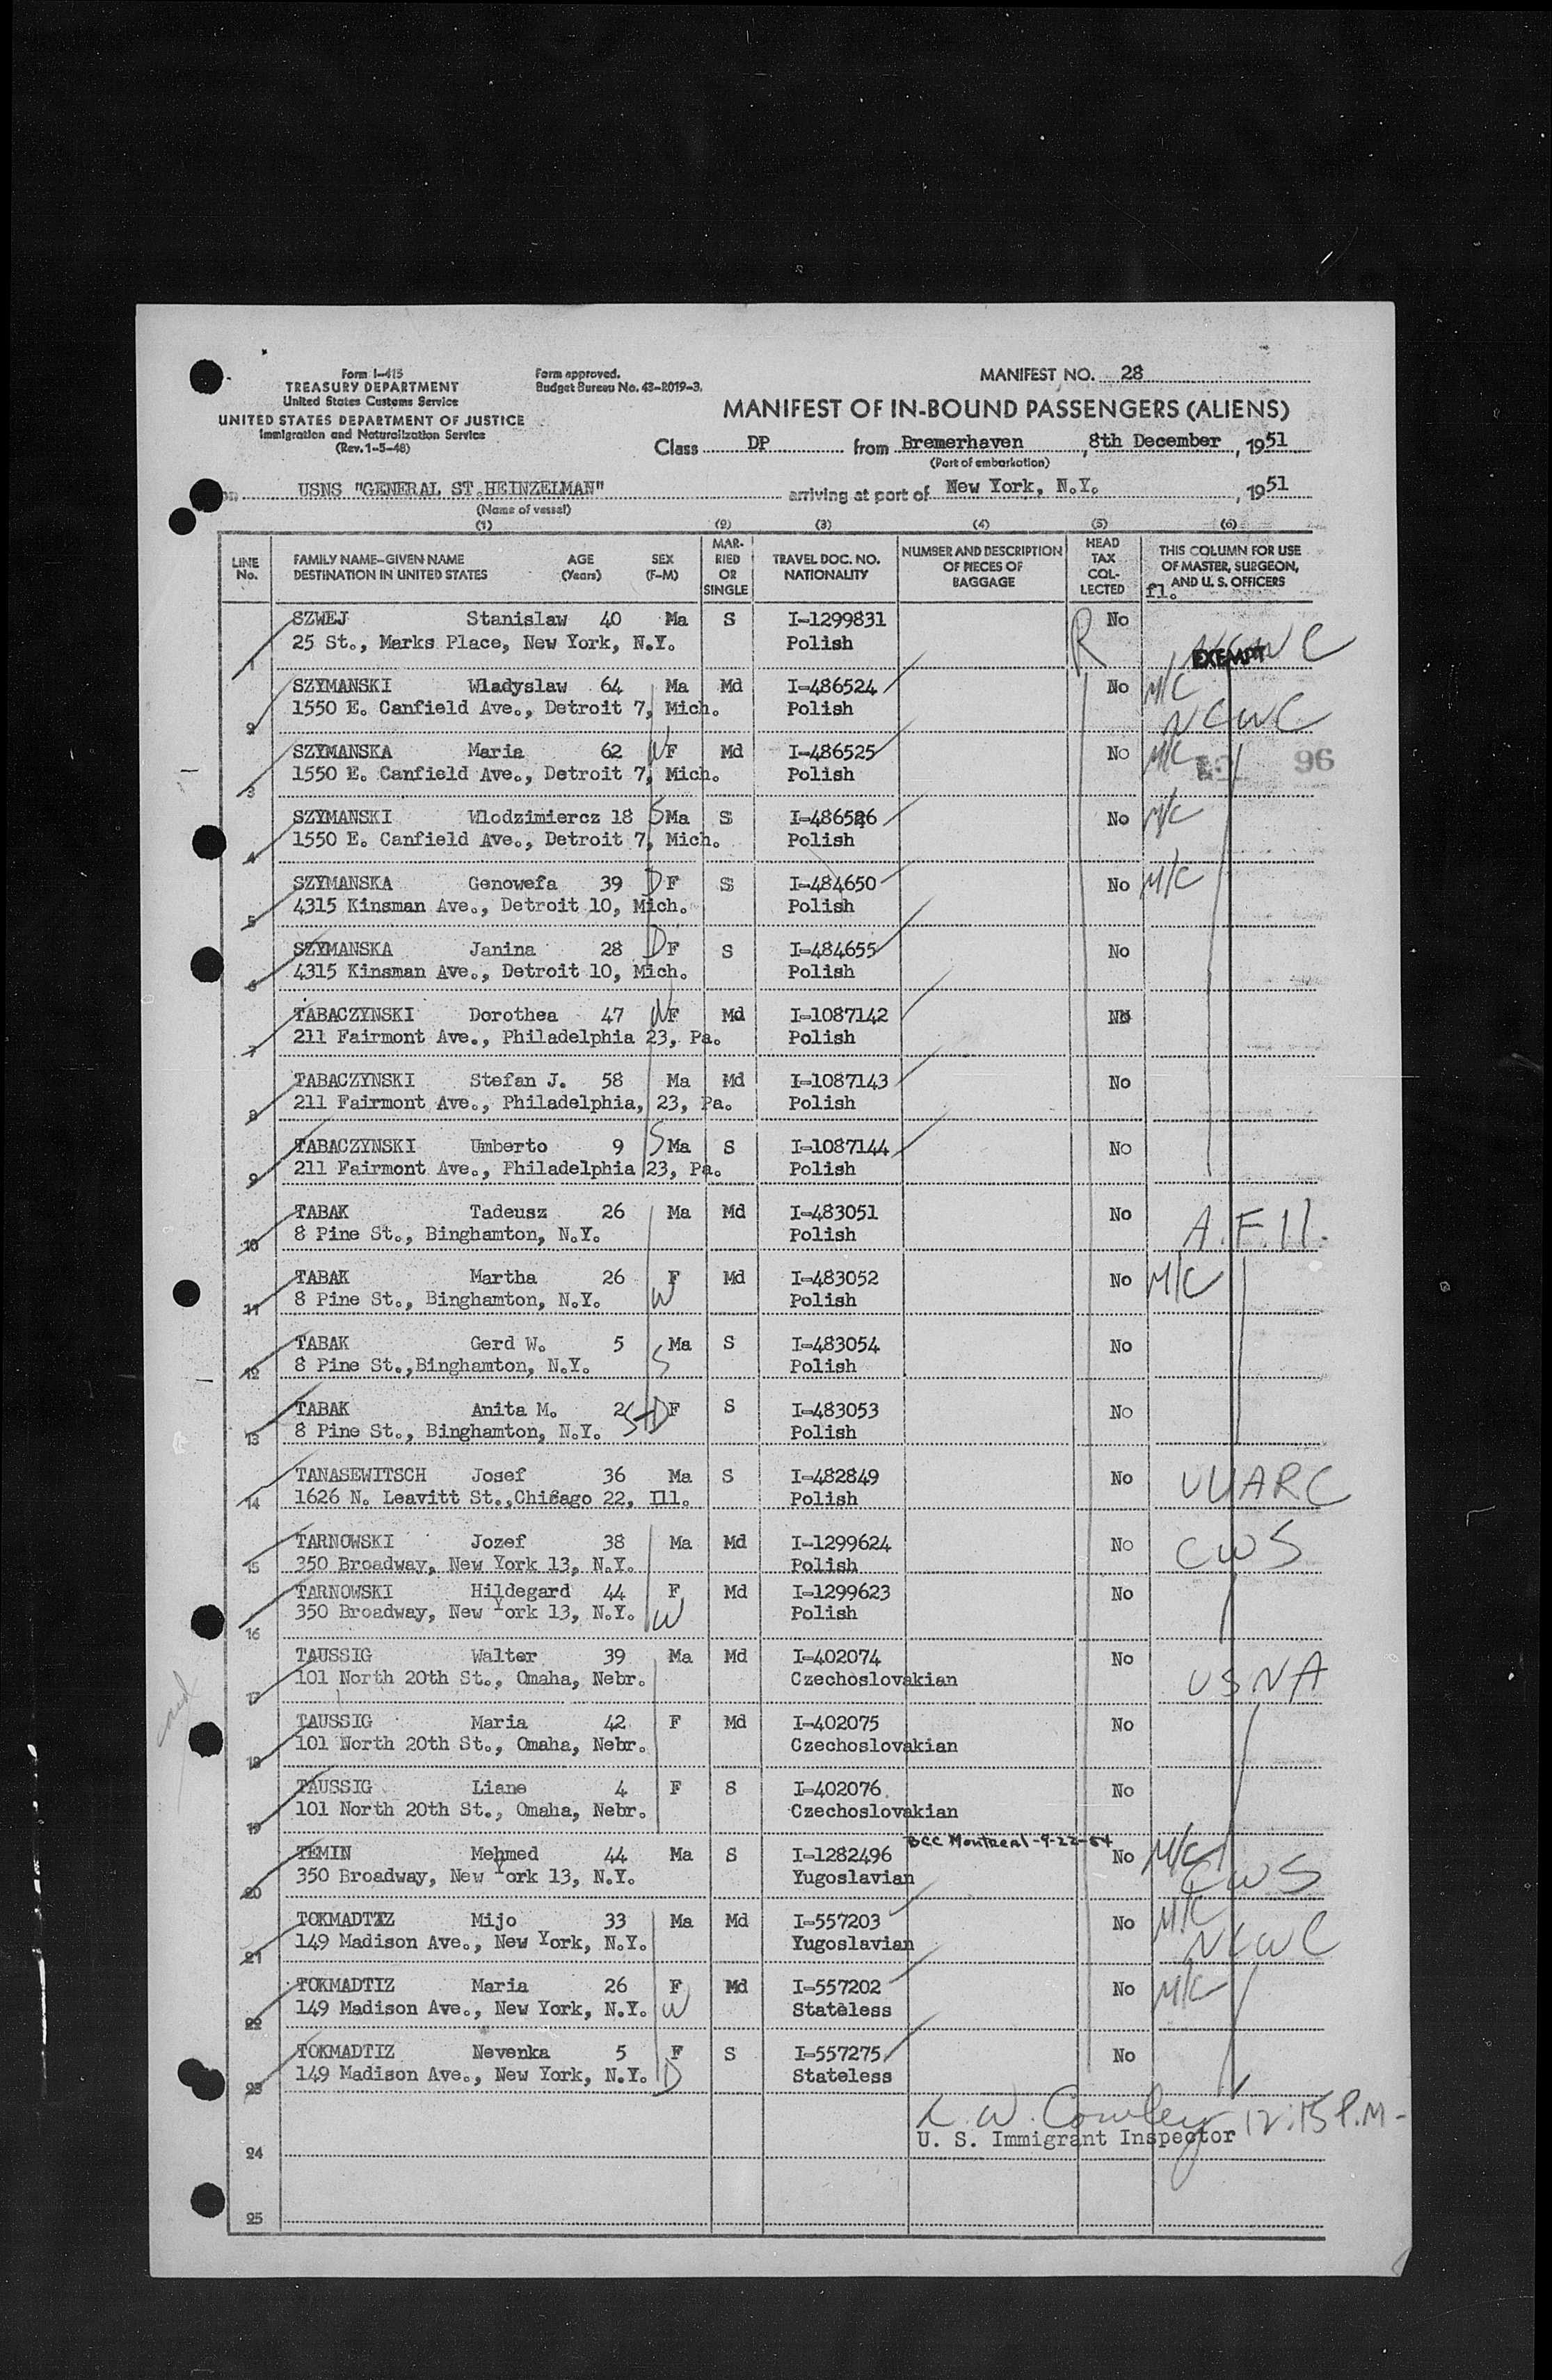 Form I-415
TREASURY DEPARTMENT
United States Customs Service
UNITED STATES DEPARTMENT OF JUSTICE
Immigration and Naturalization Service
(Rev. 1-5-48)
Form approved.
Budget Bureau No. 43-R019-3.
MANIFEST NO. 28
MANIFEST OF IN-BOUND PASSENGERS (ALIENS)
Class DP from Bremerhaven, 8th December, 1951
(Port of embarkation)
on USNS "GENERAL ST.HEINZELMAN" arriving at port of New York, N.Y., 1951
(Name of vessel)
(1) (2) (3) (4) (5) (6)
LINE No. FAMILY NAME-GIVEN NAME DESTINATION IN UNITED STATES AGE (Years) SEX (F-M) MAR-RIED OR SINGLE TRAVEL DOC. NO. NATIONALITY NUMBER AND DESCRIPTION OF PIECES OF BAGGAGE HEAD TAX COL-LECTED THIS COLUMN FOR USE OF MASTER, SURGEON, AND U. S. OFFICERS
fl.
SZWEJ Stanislaw 40 Ma S I-1299831 R No
1 25 St., Marks Place, New York, N.Y. Polish NCWC EXEMPT
SZYMANSKI Wladyslaw 64 Ma Md I-486524 No M/C
2 1550 E. Canfield Ave., Detroit 7, Mich. Polish NCWC
SZYMANSKA Maria 62 W F Md I-486525 No M/C 96
3 1550 E. Canfield Ave., Detroit 7, Mich. Polish
SZYMANSKI Wlodzimiercz 18 S Ma S I-486526 No M/C
4 1550 E. Canfield Ave., Detroit 7, Mich. Polish
SZYMANSKA Genowefa 39 D F S I-484650 No M/C
5 4315 Kinsman Ave., Detroit 10, Mich. Polish
SZYMANSKA Janina 28 D F S I-484655 No
6 4315 Kinsman Ave., Detroit 10, Mich. Polish
TABACZYNSKI Dorothea 47 W F Md I-1087142 No
7 211 Fairmont Ave., Philadelphia 23, Pa. Polish
TABACZYNSKI Stefan J. 58 Ma Md I-1087143 No
8 211 Fairmont Ave., Philadelphia, 23, Pa. Polish
TABACZYNSKI Umberto 9 S Ma S I-1087144 No
9 211 Fairmont Ave., Philadelphia 23, Pa. Polish
TABAK Tadeusz 26 Ma Md I-483051 No
10 8 Pine St., Binghamton, N.Y. Polish
TABAK Martha 26 F Md I-483052 No M/C
11 8 Pine St., Binghamton, N.Y. W Polish
TABAK Gerd W. 5 Ma S I-483054 No
12 8 Pine St.,Binghamton, N.Y. S Polish
TABAK Anita M. 2 F S I-483053 No
13 8 Pine St., Binghamton, N.Y. D Polish
TANASEWITSCH Josef 36 Ma S I-482849 No
14 1626 N. Leavitt St.,Chicago 22, Ill. Polish UUARC
TARNOWSKI Jozef 38 Ma Md I-1299624 No CWS
15 350 Broadway, New York 13, N.Y. Polish
TARNOWSKI Hildegard 44 F Md I-1299623 No
16 350 Broadway, New York 13, N.Y. W Polish
TAUSSIG Walter 39 Ma Md I-402074 No
17 101 North 20th St., Omaha, Nebr. Czechoslovakian USNA
TAUSSIG Maria 42 F Md I-402075 No
18 101 North 20th St., Omaha, Nebr. Czechoslovakian
TAUSSIG Liane 4 F S I-402076 No
19 101 North 20th St., Omaha, Nebr. Czechoslovakian
BCC Montreal-9-22-54
TEMIN Mehmed 44 Ma S I-1282496 No M/C
20 350 Broadway, New York 13, N.Y. Yugoslavian CWS
TOKMADTIZ Mijo 33 Ma Md I-557203 No M/C
21 149 Madison Ave., New York, N.Y. Yugoslavian NCWC
TOKMADTIZ Maria 26 F Md I-557202 No M/C
22 149 Madison Ave., New York, N.Y. W Stateless
TOKMADTIZ Nevenka 5 F S I-557275 No
23 149 Madison Ave., New York, N.Y. D Stateless
Cowley 12:15 P.M-
24 U. S. Immigrant Inspector
25